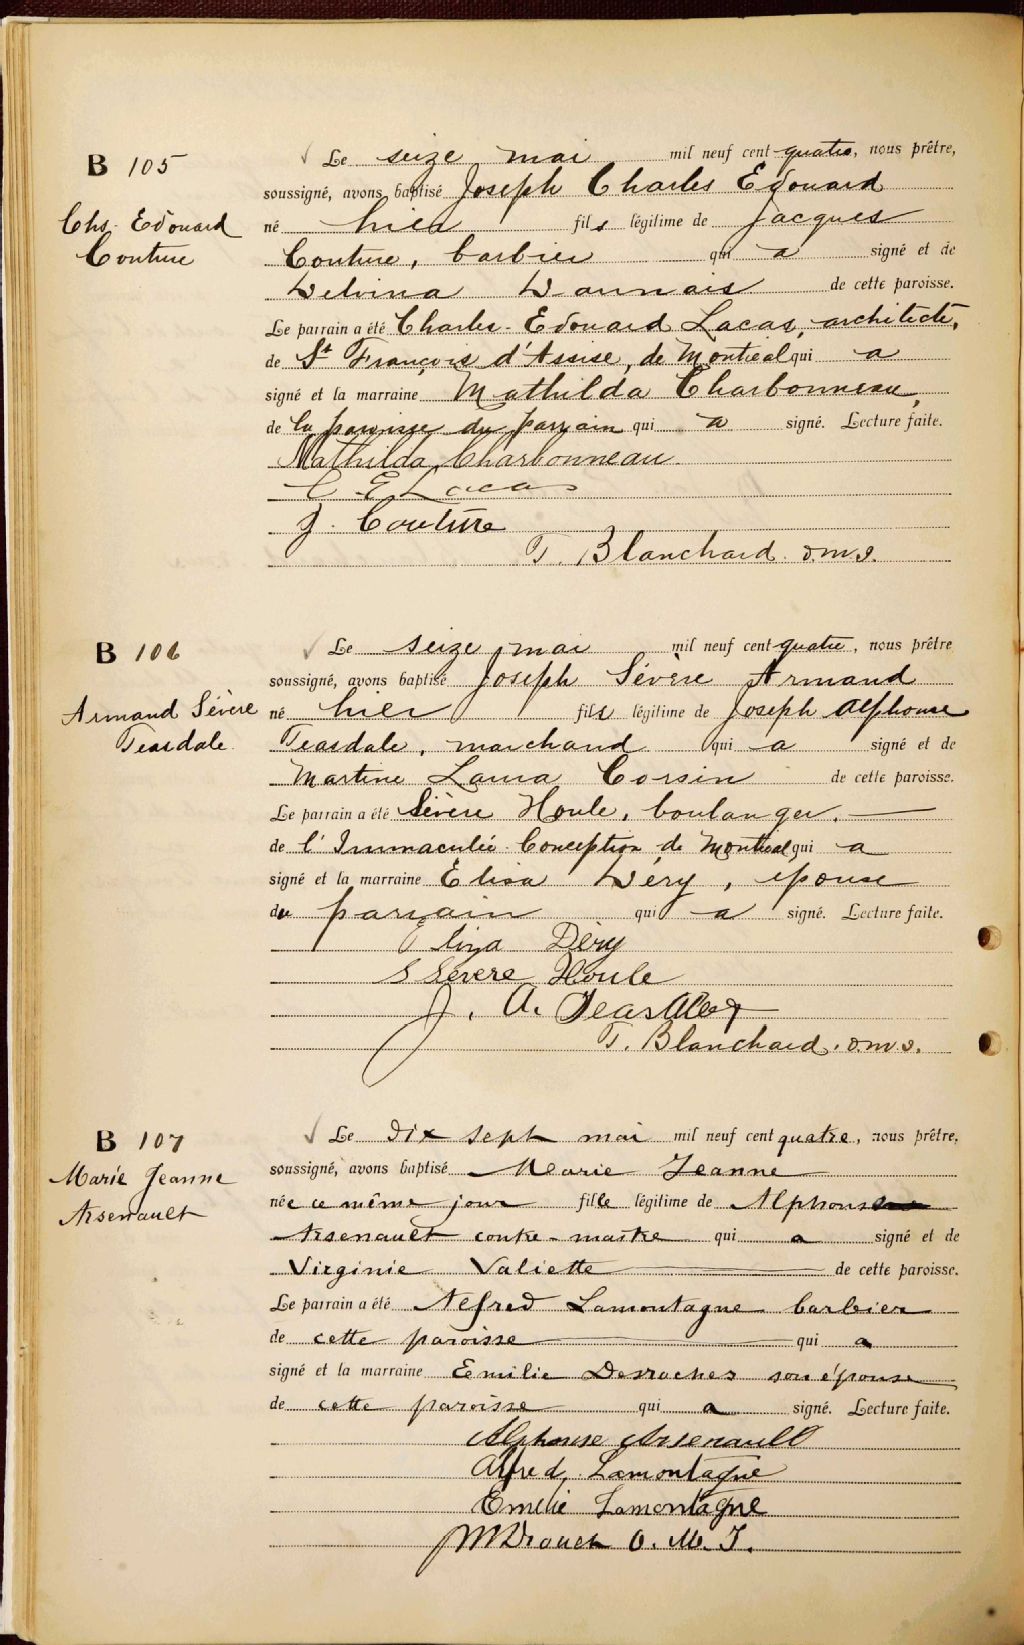 B 105
Chs. Edouard
Couture
Le seize mai mil neuf cent quatre, nous prêtre,
soussigné, avons baptisé Joseph Charles Edouard
né hier fils légitime de Jacques
Couture, barbier qui a signé et de
Delvina Daunais de cette paroisse.
Le parrain a été Charles-Edouard Lacas, architecte,
de St François d'Assise, de Montréal qui a
signé et la marraine Mathilda Charbonneau,
de la paroisse du parrain qui a signé. Lecture faite.
Mathilda Charbonneau
C E Lacas
J. Couture
T. Blanchard o.m.i.
B 106
Armand Sévère
Teasdale
Le seize mai mil neuf cent quatre, nous prêtre
soussigné, avons baptisé Joseph Sévère Armand
né hier fils légitime de Joseph Alphonse
Teasdale, marchand qui a signé et de
Martine Laura Corsin de cette paroisse.
Le parrain a été Sévère Houle, boulanger,
de l'Immaculée-Conception de Montréal qui a
signé et la marraine Elisa Déry, épouse
du parrain qui a signé. Lecture faite.
Eliza Déry
S Sévere Houle
J. A. Teasdale
T. Blanchard. o.m.i.
B 107
Marie Jeanne
Arsenault
Le dix sept mai mil neuf cent quatre, nous prêtre,
soussigné, avons baptisé Marie Jeanne
née ce même jour fille légitime de Alphonse
Arsenault contre-maitre qui a signé et de
Virginie Valiette de cette paroisse.
Le parrain a été Alfred Lamontagne barbier
de cette paroisse qui a
signé et la marraine Emilie Desroches son épouse
de cette paroisse qui a signé. Lecture faite.
Alphonse Arsenault
Alfred Lamontagne
Emelie Lamontagne
O. M. I.